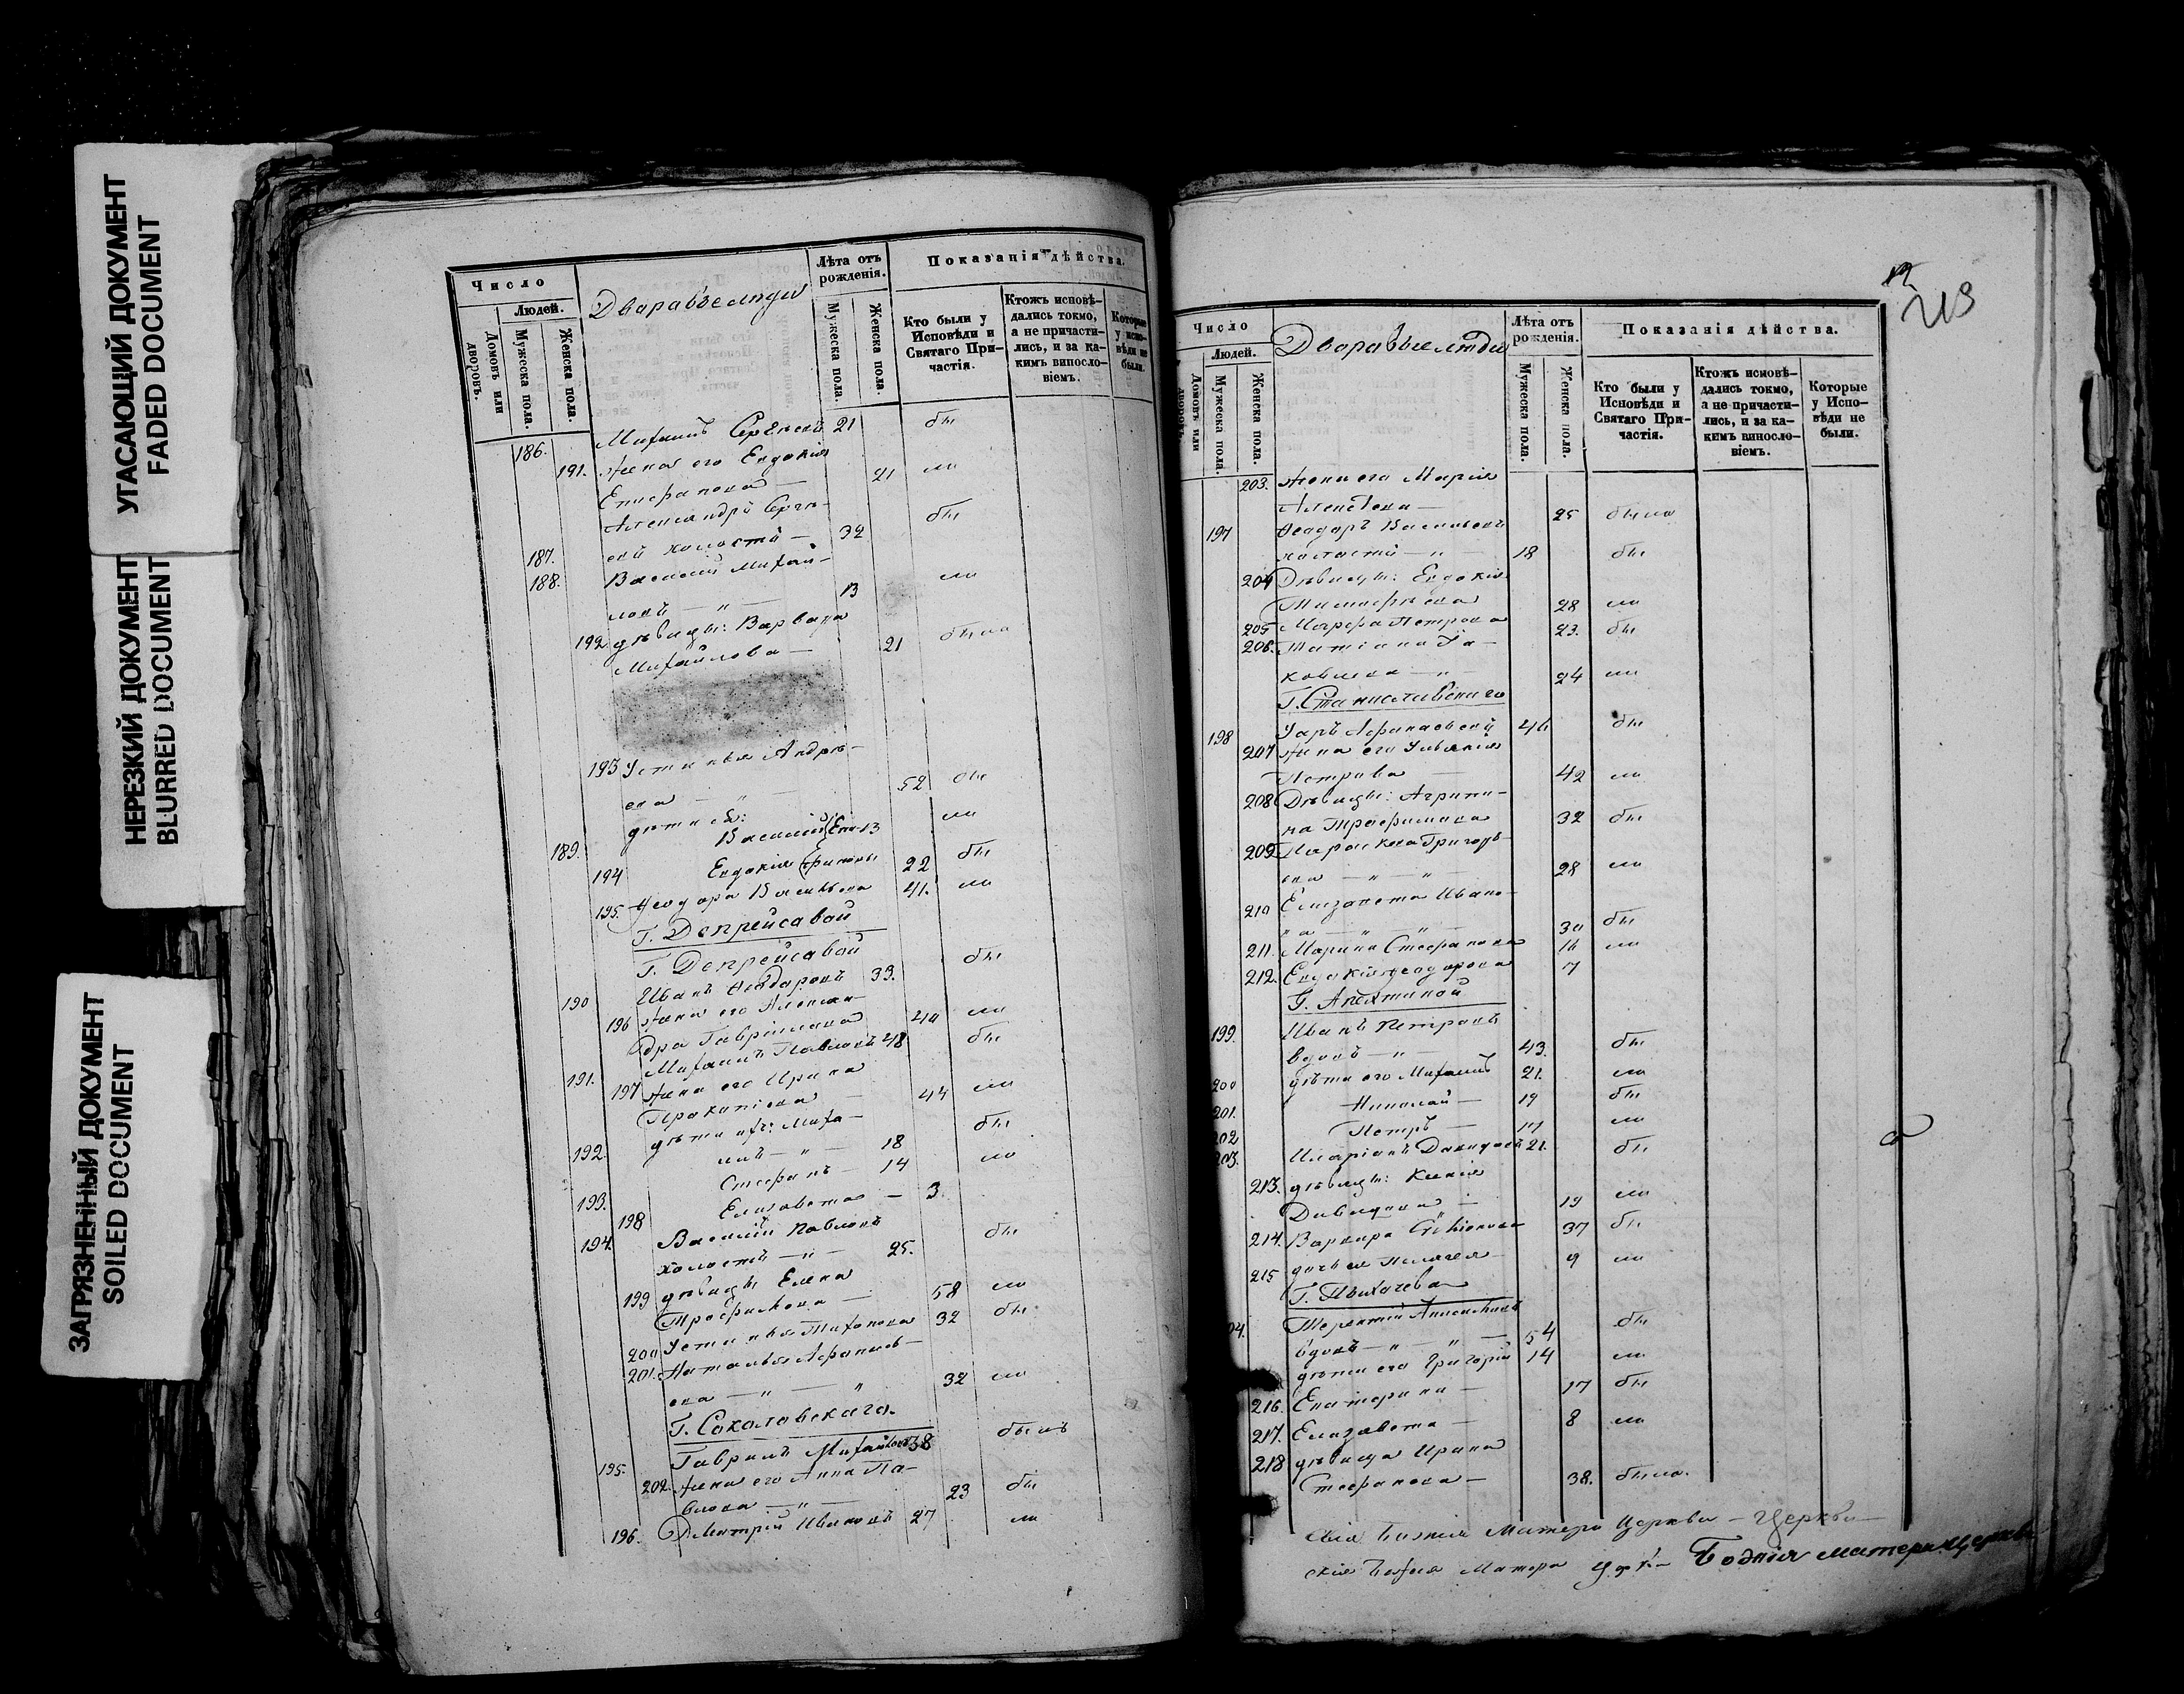 УГАСАЮЩИЙ ДОКУМЕНТ
FADED DOCUMENT
НЕРЕЗКИЙ ДОКУМЕНТ
BLURRED DOCUMENT
ЗАГРЯЗНЕННЫЙ ДОКУМЕНТ
SOILED DOCUMENT
Число
Людей.
Домовъ или дворовъ.
Мужеска пола.
Женска пола.
Дворавые люди
Лѣта отъ рожденія.
Мужеска пола.
Женска пола.
Показанія дѣйства.
Кто были у Исповѣди и Святаго Причастія.
Ктожъ исповѣдались токмо, а не причастились, и за какимъ винословіемъ.
Которые у исповѣди не были.
186. Михаилъ Сергѣевъ 21 бы
191. жена его Евдокия
Епифанова — 21 ли
Александръ Серге-
187. евъ холостй — 32 бы
188. Василий Михай-
ловъ — " — 13 ли
192 дѣвицы: Варвара
Михайлова — 21 была
193 Устинья Андрѣ-
ева — " — 52 бы
дѣти ея:
189. Василий Епи 13 ли
194 Евдокия фановы 22 бы
195. Ѳеодора Васильева 41. ли
Г. Депрейсавой
Г. Депрейсавой
190 Иванъ Ѳеодаровъ 33. бы
196 жена его Алексан-
дра Гаврилова 40 ли
191. Михаилъ Павловъ 48 бы
197 жена его Ирина
Пракапіева — 44 ли
дѣти ихъ: Миха-
192. илъ — " — 18 бы
193. Стефанъ — 14 ли
198 Елизавета — 3.
194. Василий Павловъ
холостъ — " — 25. бы
199 дѣвицы Елена
Трофимова — 58 ли
200 Устинья Тихонова 32 бы
201. Наталья Афанась-
ева — " — " 32 ли
Г. Сокаловскаго.
195. Гаврилъ Михайловъ 38 былъ
202. жена его Анна Па-
влова — " — 23 бы
196. Дмитрій Ивановъ 27 ли
213
Число
Людей.
Домовъ или дворовъ.
Мужеска пола.
Женска пола.
Дворавые люди
Лѣта отъ рожденія.
Мужеска пола.
Женска пола.
Показанія дѣйства.
Кто были у Исповѣди и Святаго Причастія.
Ктожъ исповѣдались токмо, а не причастились, и за какимъ винословіемъ.
Которые у Исповѣди не были.
203. жена его Мария
Алексѣева — 25 была
197 Ѳеодаръ Васильевъ
халастй — " — 18 бы
204 Дѣвицы: Евдокия
Тимофѣева 28 ли
205 Марфа Петрова 23. бы
206. Татіана Я-
ковлева — " — 24 ли
Г. Станиславскаго
198 Уаръ Афанасьевъ 46 бы
207 жена его Ульяния
Петрова — 42 ли
208 Дѣвицы: Агрипи-
на Трофимова 32 бы
209 Параскева Григорь-
ева — " — " 28 ли
210 Елизавета Ивано-
ва — " — " — 30 бы
211. Марина Стефанова 16 ли
212. Евдокия Ѳеодорова 7
Г. Апехтиной
199. Иванъ Петровъ
вдовъ — " — 43. бы
200 дѣти его Михаилъ 21. ли
201. Николай — 19 бы
202 Петръ — 17 ли
203. Иларіонъ Давидовъ 21. бы
213. дѣвицы: Ксения
Давидова — 19 ли
214. Варвара 37 бы
215 дочь ея Пелагея 9 ли
204. Терентій
вдовъ — " — " — 54 бы
дѣти его Григорій 14 ли
216. Екатерина — 17 бы
217. Елизавета — 8 ли
218 дѣвица Ирина
Стефанова — 38. была.
Божия Матери Церкви — Церкви
Матери Божия матери церкви